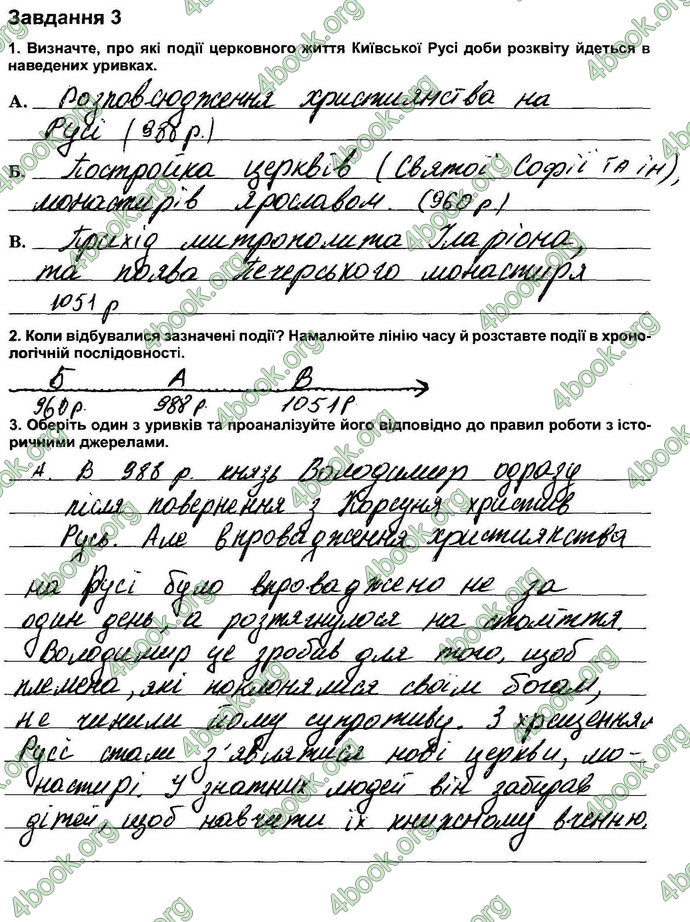 Завдання 3
1. Визначте, про які події церковного життя Київської Русі доби розквіту йдеться в
наведених уривках.
А. Розповсюдження християнства на
Русі (988 р.)
Б. Постройка церквів (Святої Софії та ін),
монастирів Ярославом. (960 р)
В. Прихід митрополита Іларіона,
та поява Печерського монастиря
1051 р
2. Коли відбувалися зазначені події? Намалюйте лінію часу й розставте події в хроно-
логічній послідовності.
Б А В
960 р. 988 р. 1051 р
3. Оберіть один з уривків та проаналізуйте його відповідно до правил роботи з істо-
ричними джерелами.
А. В 988 р. князь Володимир одразу
після повернення з Корсуня християв
Русь. Але впровадження християнства
на Русі було впроваджено не за
один день, а розтягнулося на століття.
Володимир це зробив для того, щоб
племена, які поклонялися своїм богам,
не чинили йому супротиву. З хрещенням
Русі стали з'являтися нові церкви, мо-
настирі. У знатних людей він забирав
дітей, щоб навчити їх книжному вченню.
4book.org